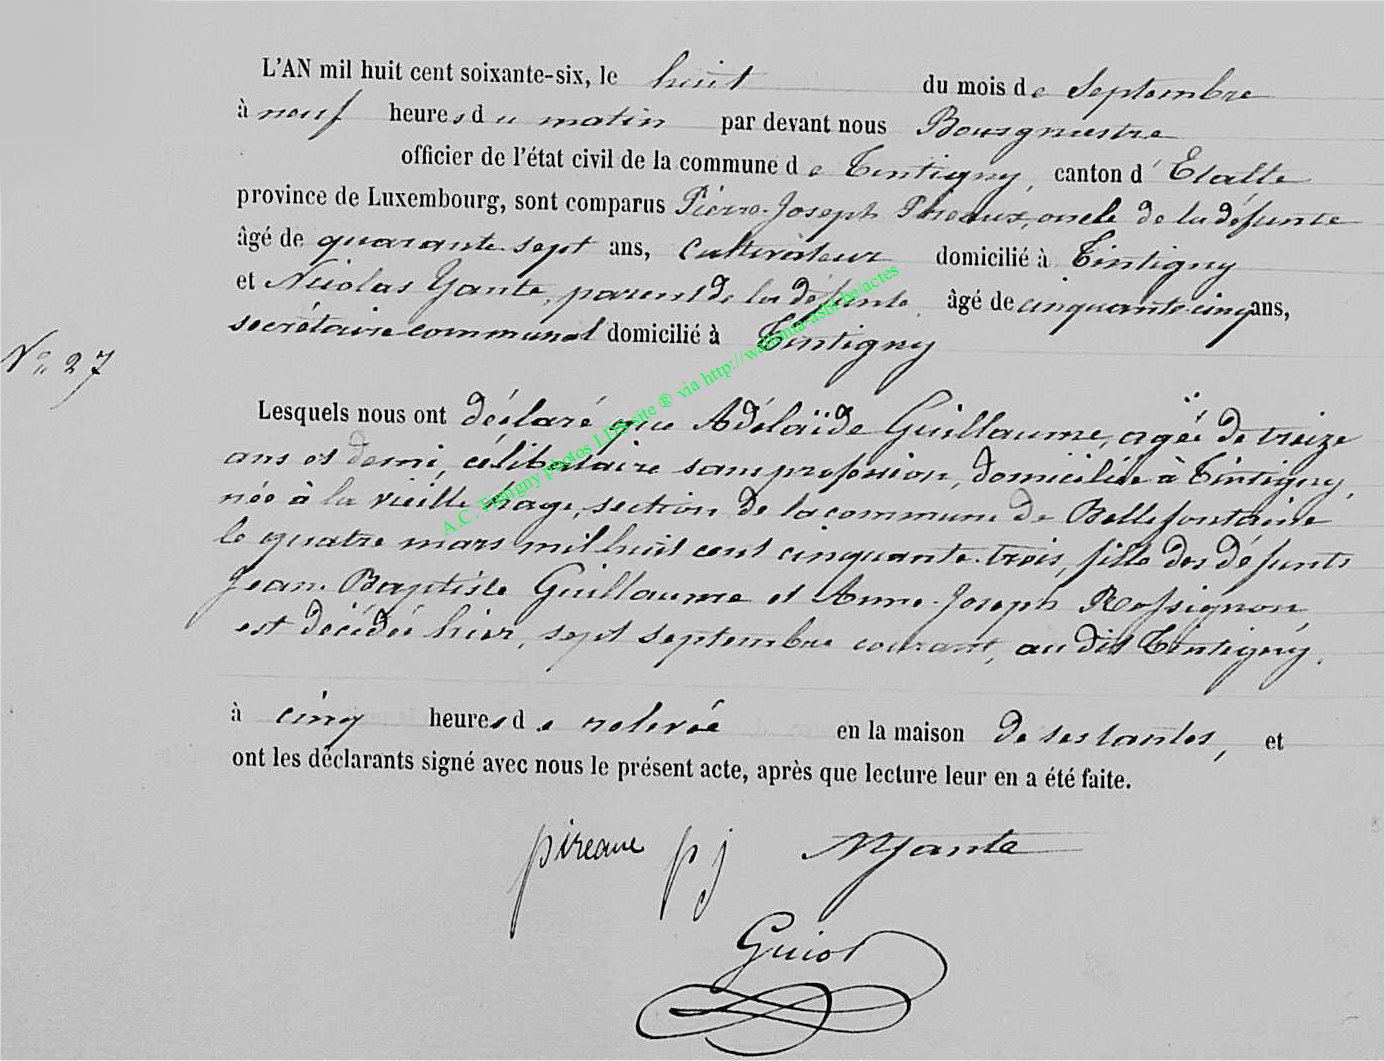 L'AN mil huit cent soixante-six, le huit du mois de Septembre
à neuf heures du matin par devant nous Bourgmestre
officier de l'état civil de la commune de Tintigny, canton d'Etalle
province de Luxembourg, sont comparus Pierre-Joseph Pireaux, oncle de la défunte
âgé de quarante-sept ans, Cultivateur domicilié à Tintigny
et Nicolas Jante, parent de la défunte, âgé de cinquante-cinq ans,
secrétaire communal domicilié à Tintigny
N° 27
Lesquels nous ont déclaré que Adélaïde Guillaume, agée de treize
ans et demi, célibataire sans profession, domiciliée à Tintigny,
née à la vieille hage, section de la commune de Bellefontaine
le quatre mars mil huit cent cinquante-trois, fille des défunts
Jean-Baptiste Guillaume et Anne-Joseph Rossignon,
est décédée hier, sept septembre courant, au dit Tintigny,
à cinq heures de relevée en la maison de ses tantes, et
ont les déclarants signé avec nous le présent acte, après que lecture leur en a été faite.
pireaux pj NJante
Guiot
A.C. Tintigny photos LDS site ® via http://wallonia-asbl.be/actes